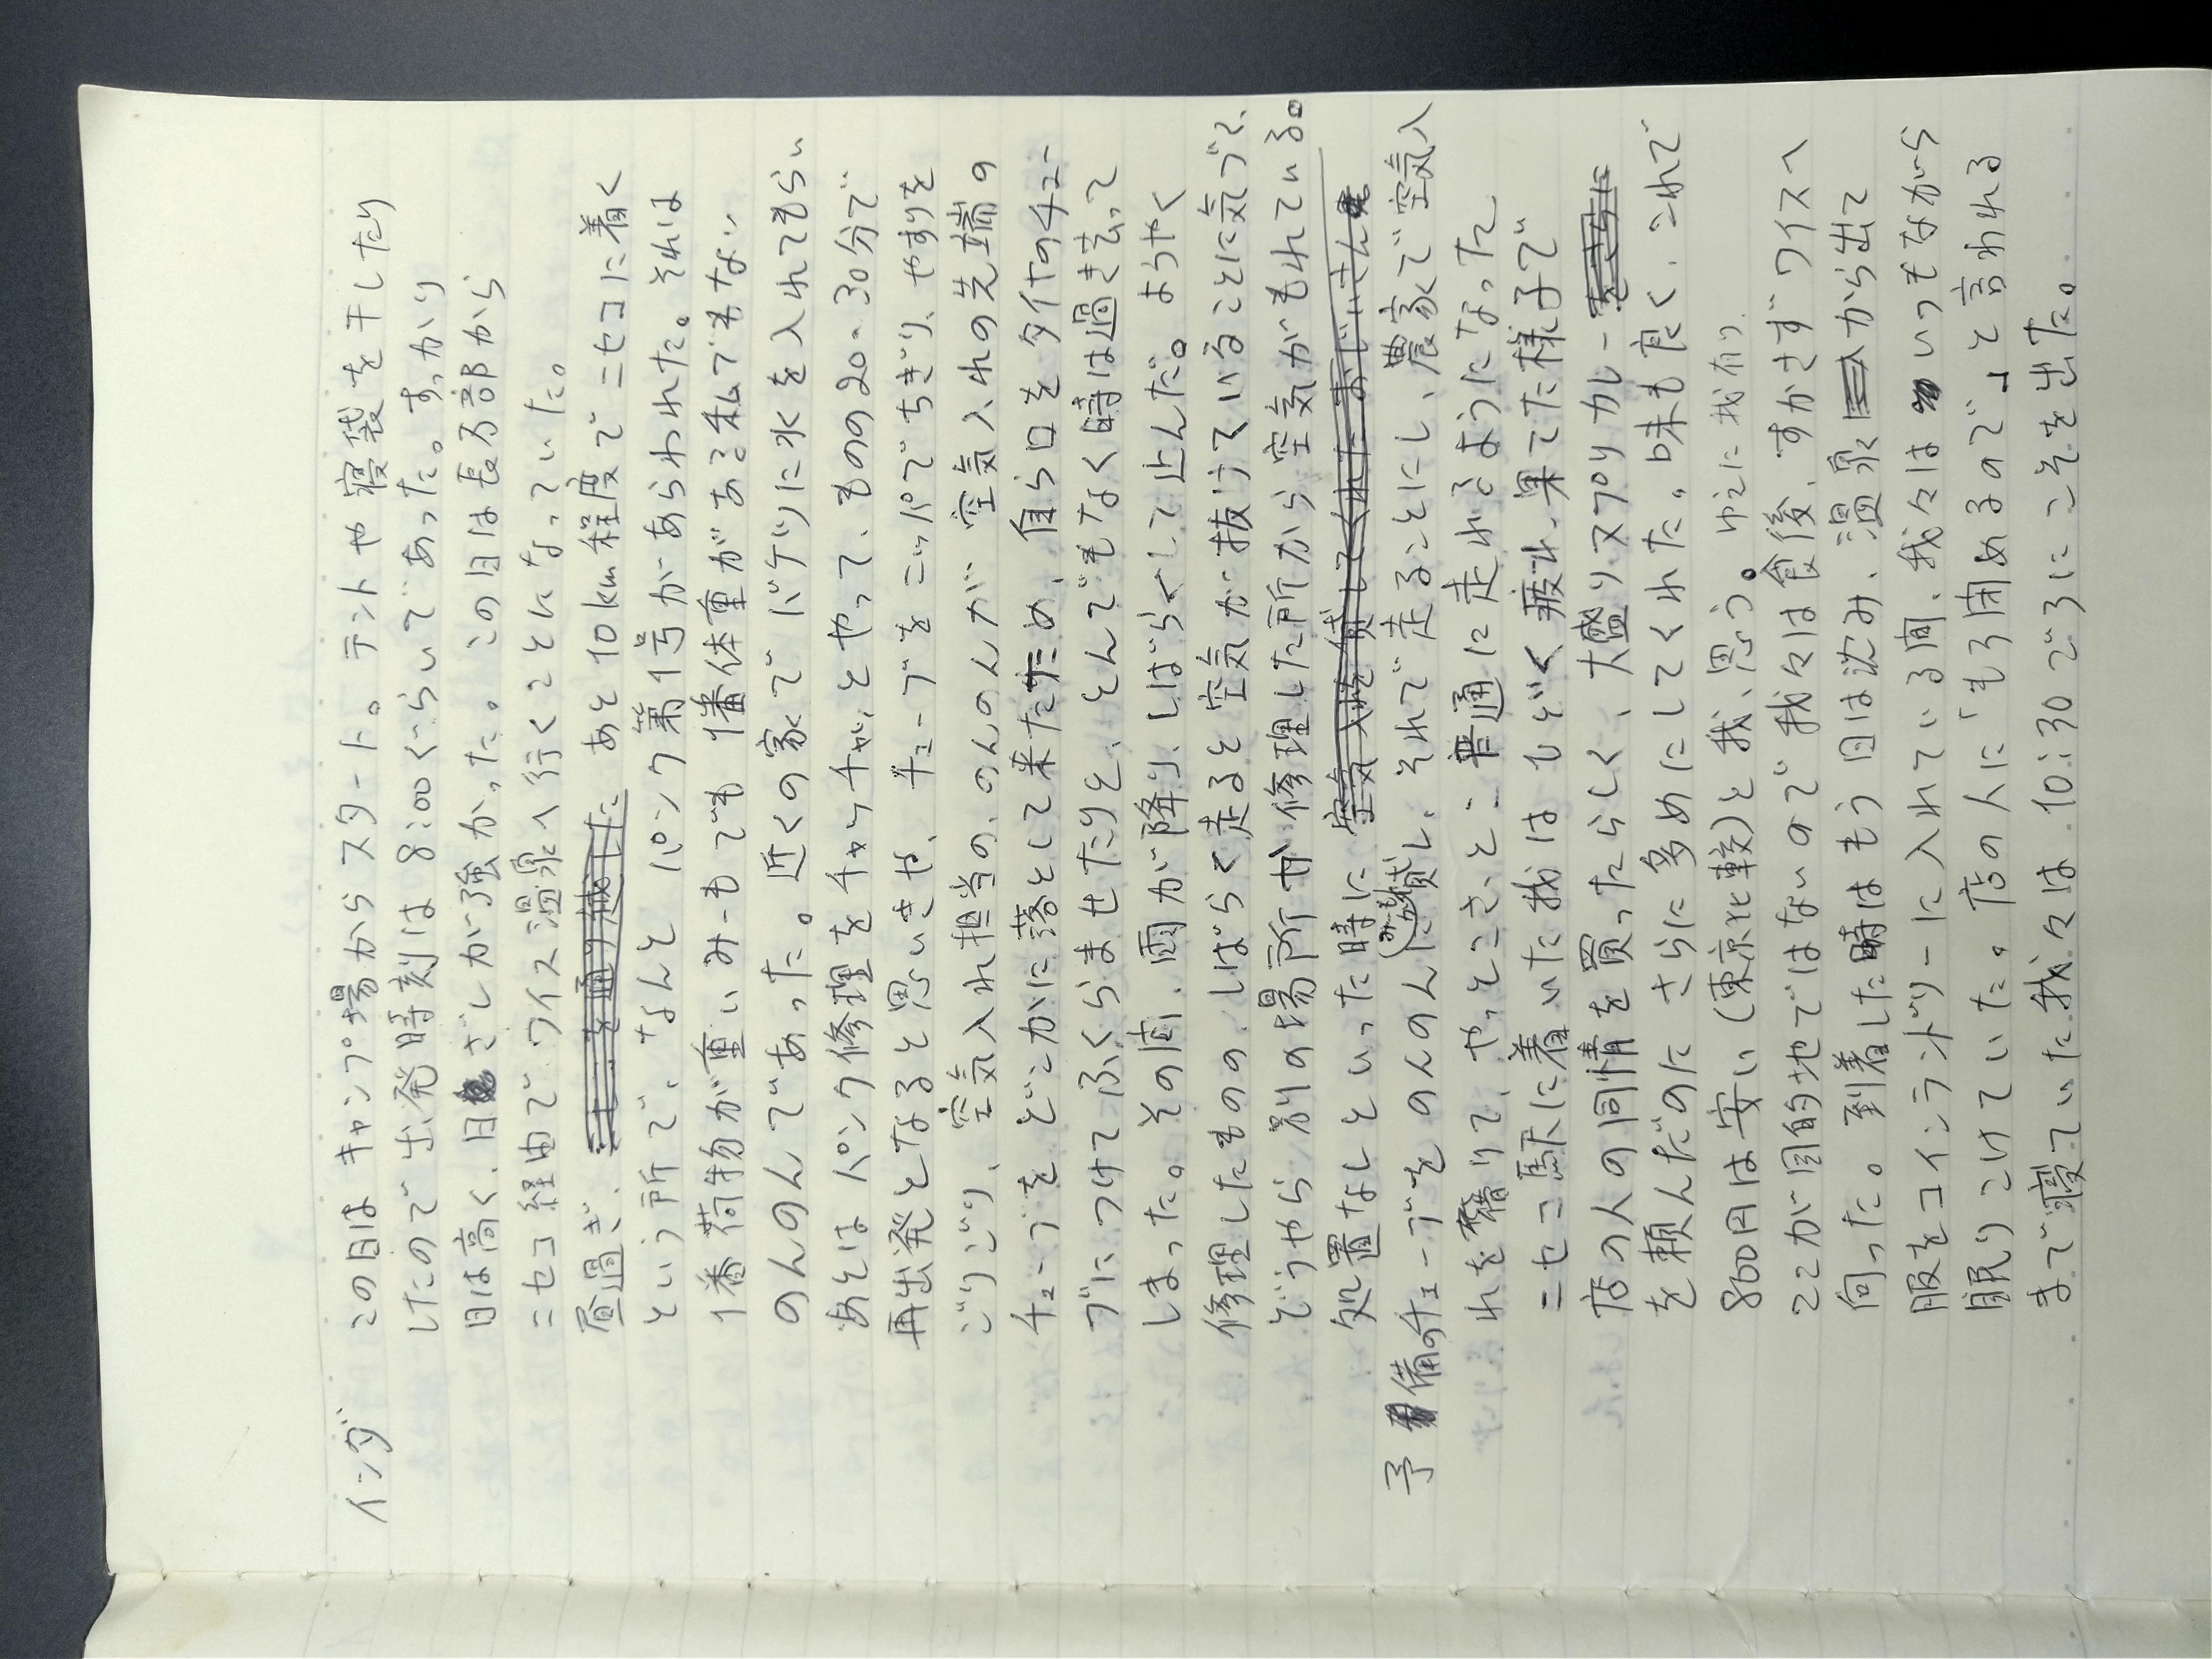 インダ この日はキャンプ場からスタート。テントや寝袋を干したり
したので出発時刻は8:00ぐらいであった。すっかり
日は高く、日ざしが強かった。この日は長万部から
ニセコ経由でワイス温泉へ行くことになっていた。
昼過ぎ、 あと10km程度でニセコに着く
という所で、なんとパンク第1号があらわれた。それは
1番荷物が重いみーもでも1番体重がある私でもない
のんのんであった。近くの家でバケツに水を入れてもらい
あとはパンク修理をチャッチャッとやって、ものの20〜30分で
再出発となると思いきや、チューブをニッパでちぎり、やすりを
ごりごり、空気入れ担当の、のんのんが空気入れの先端の
チューブをどこかに落として来たため、自ら口をタイヤのチュー
ブにつけてふくらませたりと、とんでもなく時は過ぎ去って
しまった。その間、雨が降り、しばらくして止んだ。ようやく
修理したものの、しばらく走ると空気が抜けていることに気づく、
どうやら別の場所か修理した所から空気がもれている。
処置なしといった時に 空気入れを貸してくれたおじいさんは
予備のチューブをのんのんに賛し、それで走ることにし、農家で空気入
れを借りて、やっとこさっとこ普通に走れるようになった
ニセコ駅に着いた我はひどく疲れ果てた様子で
店の人の同情を買ったらしく、大盛りスプリカレー
を頼んだのたさらに多めにしてくれた。味も良く、これで
800円は安い(東京比較)と我、思う。ゆえに我有り
ここが目的地ではないので我々は食後、すかさずワイスへ
向った。到着した時はもう日は沈み、温泉から出て
服をコインランドリーに入れている間、我々はいつもながら
眠りこけていた。店の人に「もう閉めるので」と言われる
まで寝ていた我々は10:30ごろにこそを出た。